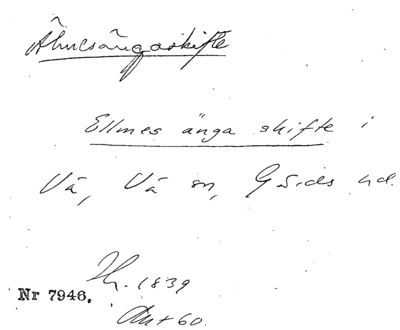 Älmesängaskifte
Ellmes änga skifte i
Vä, Vä sn, Gärds hd.
Hk. 1839
Nr 7946.
Akt 60.